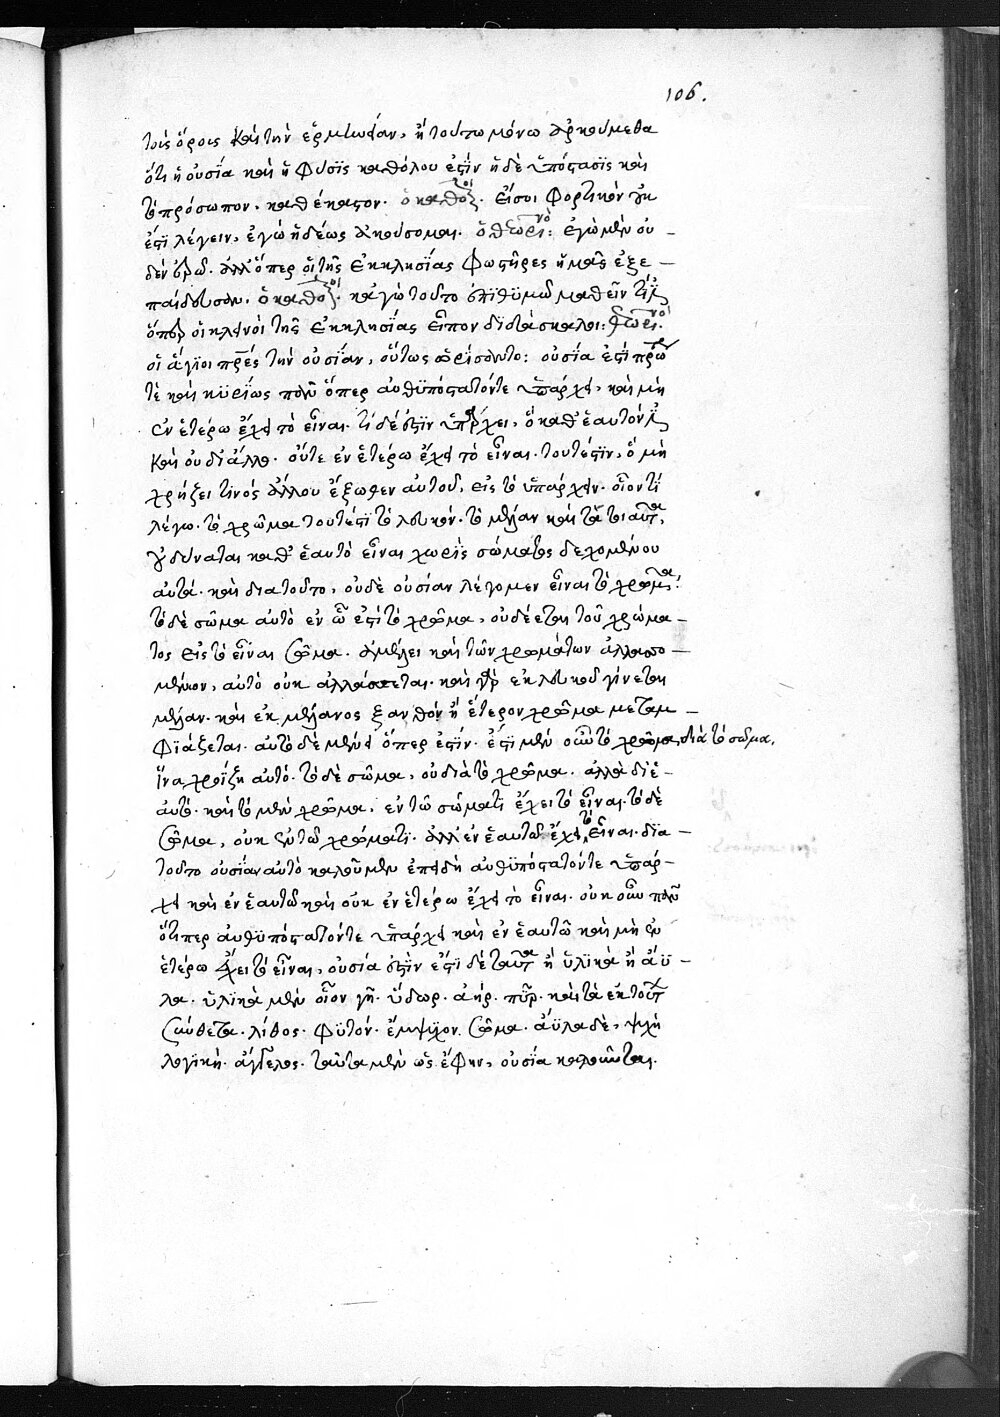 106.
τοῖς ὅροις καὶ τὴν ἑρμηνείαν, ἢ τούτω μόνω ἀρκούμεθα
ὅτι ἡ οὐσία καὶ ἡ φύσϊς καθόλου ἐστὶν ἡ δὲ ὑπόστασϊς καὶ
τὸ πρόσωπον. καθέκαστον. ὁ καθολ. Εἴσοι φορτικὸν οὐκ
ἐστὶ λέγειν, ἐγὼ ἡδέως ἀκούσομαι. ὁ θεωρι: Ἐγὼ μὲν οὐ –
δὲν ἐρῶ. ἀλλ' ὅπερ οἱ τῆς ἐκκλησίας φωστῆρες ἡμᾶς ἐξε –
παίδευσαν. ὁ καθολ. κἀγὼ τοῦτο ἐπϊθϋμῶ μαθεῖν τί
ὅπερ οἱ κλεινοὶ τῆς ἐκκλησίας εἶπον διδάσκαλοι:
οἱ ἅγϊοι πρες τὴν οὐσίαν, οὕτως ὡρίσαντο: οὐσία ἐστὶ πρώ
τε καὶ κϋρΐως πᾶν ὅπερ αὐθϋπόστατόντε ὑπάρχει, καὶ μὴ
ἐν ἑτέρω ἔχει τὸ εἶναι. τί δέ ἐστϊν ὑπάρχει, ὃ καθ' ἑαυτὸν
καὶ οὐ δι' ἄλλο. οὔτε ἐν ἑτέρω ἔχει τὸ εἶναι. τουτέστϊν, ὃ μὴ
χρήζει τινὸς ἄλλου ἔξωθεν αὐτοῦ, εἰς τὸ ὑπάρχειν. οἷον τί
λέγω. τὸ χρῶμα τουτέστϊ τὸ λευκόν. τὸ μέλαν καὶ τὰ τοιαῦτα,
οὐ δύναται καθ' ἑαυτὸ εἶναι χωρὶς σώματος δεχομένου
αὐτά. καὶ διατοῦτο, οὐδὲ οὐσίαν λέγομεν εἶναι τὸ χρῶμα.
τὸ δὲ σῶμα αὐτὸ ἐν ὧ ἐστὶ τὸ χρῶμα, οὐ δέεται τοῦ χρώμα –
τος εἰς τὸ εἶναι σῶμα. ἀμέλει καὶ τῶν χρωμάτων ἀλλασσο –
μένων, αὐτὸ οὐκ ἀλλάσσεται. καὶ γὰρ ἐκ λευκοῦ γίνεται
μέλαν. καὶ ἐκ μέλανος ξανθὸν ἢ ἕτερον χρῶμα μεταμ –
φιάζεται. αὐτὸ δὲ μένει ὅπερ ἐστίν. ἐστὶ μὲν οὖν τὸ χρῶμα, διὰ τὸ σῶμα,
ἵνα χρώζη αὐτό. τὸ δὲ σῶμα, οὐ διὰ τὸ χρῶμα. ἀλλὰ δι' ἑ –
αὐτό. καὶ τὸ μὲν χρῶμα, ἐν τῶ σώματι ἔχει τὸ εἶναι. τὸ δὲ
σῶμα, οὐκ ἐν τῶ χρώματι. ἀλλ' ἐν ἑαυτῶ ἔχει τὸ εἶναι. δϊα –
τοῦτο οὐσίαν αὐτὸ καλοῦμεν ἐπειδὴ αὐθϋπόστατόντε ὑπάρ –
χει καὶ ἐν ἑαυτῶ καὶ οὐκ ἐν ἑτέρω ἔχει τὸ εἶναι. οὐκοῦν πᾶν
ὅτιπερ αὐθϋπόστατόντε ὑπάρχει καὶ ἐν ἑαυτῶ καὶ μὴ ἐν
ἑτέρω ἔχει τὸ εἶναι, οὐσία ἐστὶν ἐστὶ δὲ ταῦτα ἢ ὑλϊκὰ ἢ ἄϋ –
λα. ὑλϊκὰ μὲν οἷον γῆ. ὕδωρ. ἀήρ. πῦρ. καὶ τὰ ἐκ τούτ
σύνθετα. λίθος. φϋτόν. ἔμψυχον. σῶμα. ἄϋλα δὲ, ψυχὴ
λογϊκὴ. ἄγγελος. ταῦτα μὲν ὡς ἔφην, οὐσία καλοῦνται.